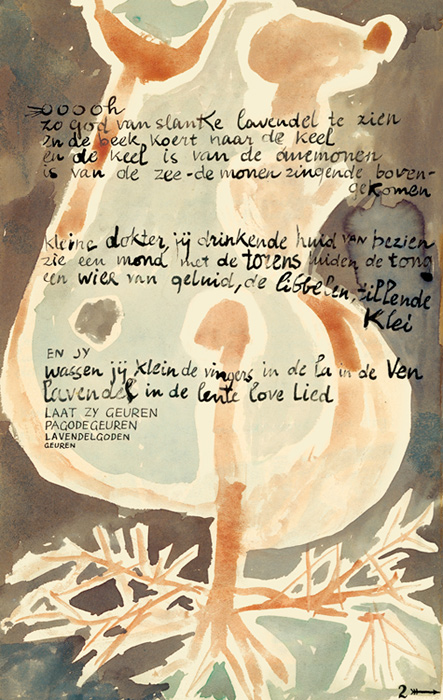 ooooh
zo god van slanke lavendel te zien
in de beek koert naar de keel
en de keel is van de anemonen
is van de zee-de monen zingende boven-
gekomen
kleine dokter, jij drinkende huid van bezien
zie een mond met de torens luiden de tong
een wier van geluid, de libbelen, tillende
Klei
EN JY
wassen jij klein de vingers in de la in de ven
lavendel in de lente love lied
LAAT ZY GEUREN
PAGODEGEUREN
LAVENDELGODEN
GEUREN
2